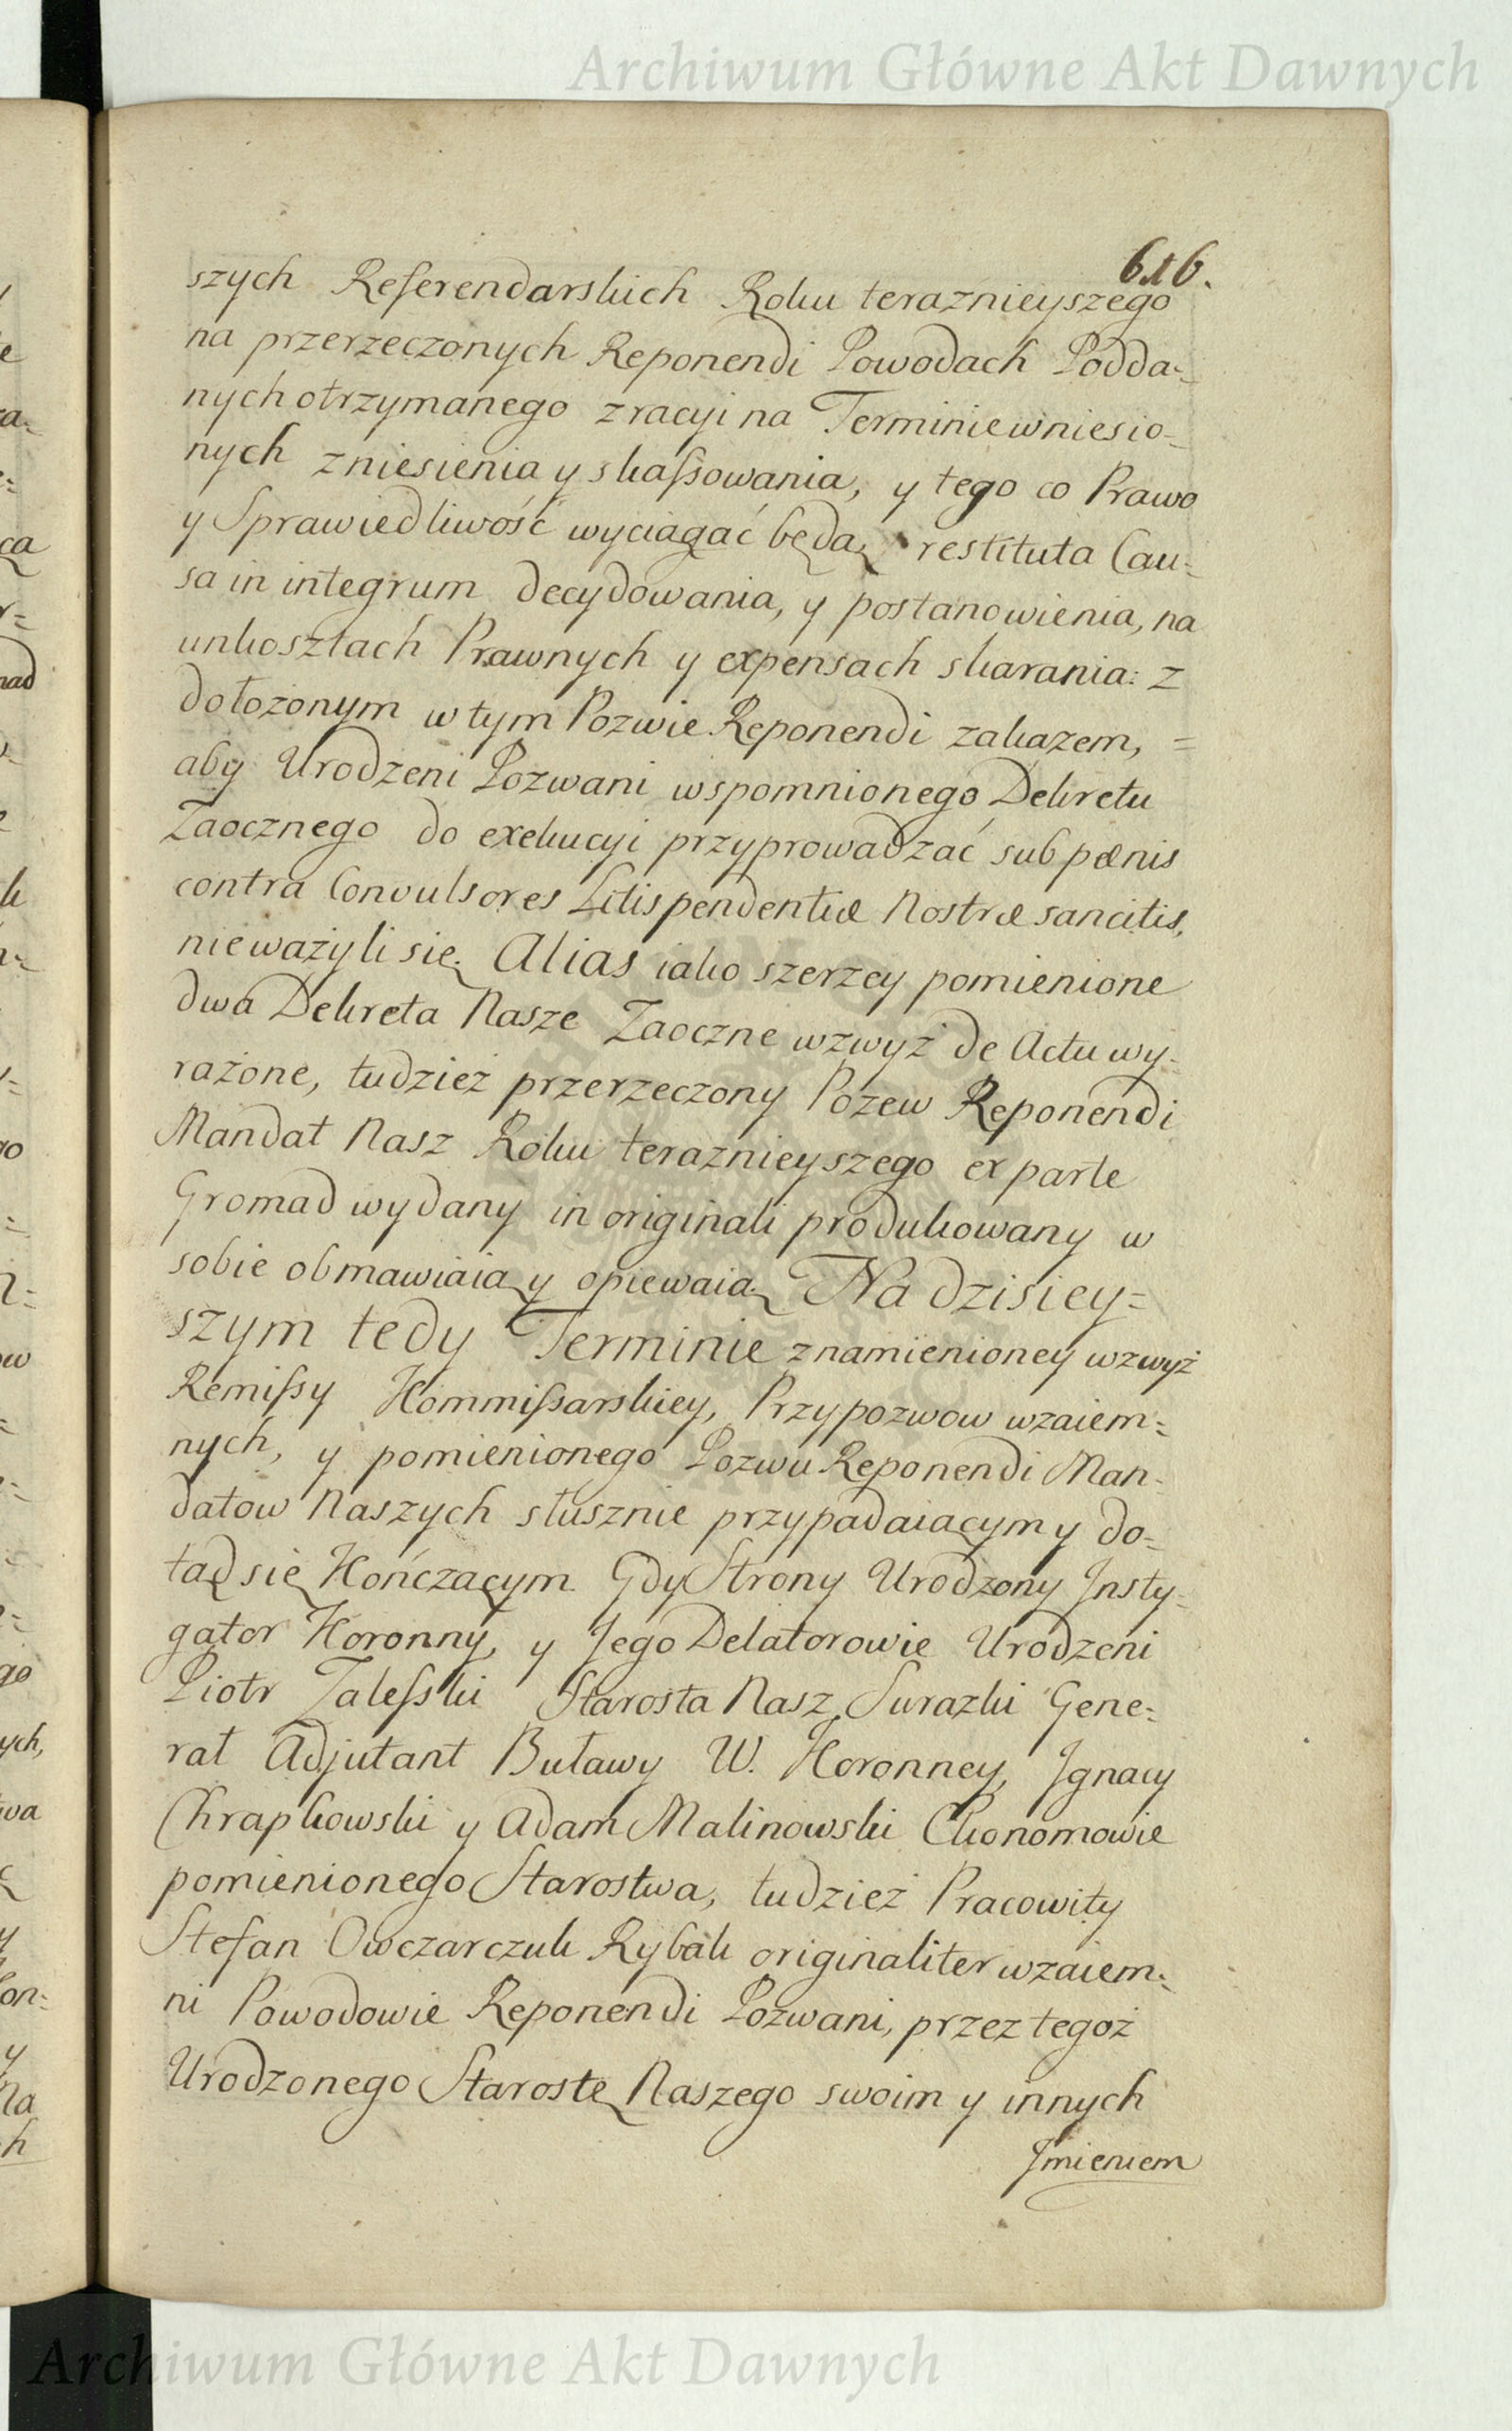 Archiwum Główne Akt Dawnych
616.
szych Referendarskich Roku teraznieyszego
na przerzeczonych Reponendi Powodach Podda=
nych otrzymanego z racyi na Terminie wniesio=
nych zniesienia y skaſsowania, y tego co Prawo
y Sprawiedliwość wyciągać będą, restituta Cau=
sa in integrum decydowania, y postanowienia, na
unkosztach Prawnych y expensach skarania: z
dołożonym w tym Pozwie Reponendi zakazem, =
aby Urodzeni Pozwani wspomnionego Dekretu
Zaocznego do exekucyi przyprowadzać sub pænis
contra Convulsores Litispendentiæ Nostræ sancitis,
nieważyli się. Alias iako szerzey pomienione
dwa Dekreta Nasze Zaoczne wzwyż de Actu wy=
rażone, tudzież przerzeczony Pozew Reponendi
Mandat Nasz Roku teraznieyszego ex parte
Gromad wydany in originali produkowany w
sobie obmawiaią y opiewaią. Na dzisiey=
szym tedy Terminie znamienioney wzwyż
Remiſsy Kommiſsarskiey, Przypozwow wzaiem=
nych, y pomienionego Pozwu Reponendi Man=
datow Naszych słusznie przypadaiącym y do=
tąd się Kończącym. Gdy Strony Urodzony Insty=
gator Koronny, y Jego Delatorowie Urodzeni
Piotr Zaleſski Starosta Nasz Surazki Gene=
rał Adjutant Buławy W. Koronney, Jgnacy
Chrapkowski y Adam Malinowski Ekonomowie
pomienionego Starostwa, tudzież Pracowity
Stefan Owczarczuk Rybak originaliter wzaiem=
ni Powodowie Reponendi Pozwani, przez tegoż
Urodzonego Starostę Naszego swoim y innych
Jmieniem
Archiwum Główne Akt Dawnych